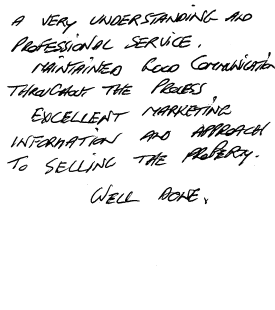 A VERY UNDERSTANDING AND
PROFESSIONAL SERVICE.
MAINTAINED GOOD COMMUNICATION
THROUGHOUT THE PROCESS.
EXCELLENT MARKETING
INFORMATION AND APPROACH
TO SELLING THE PROPERTY.
WELL DONE.